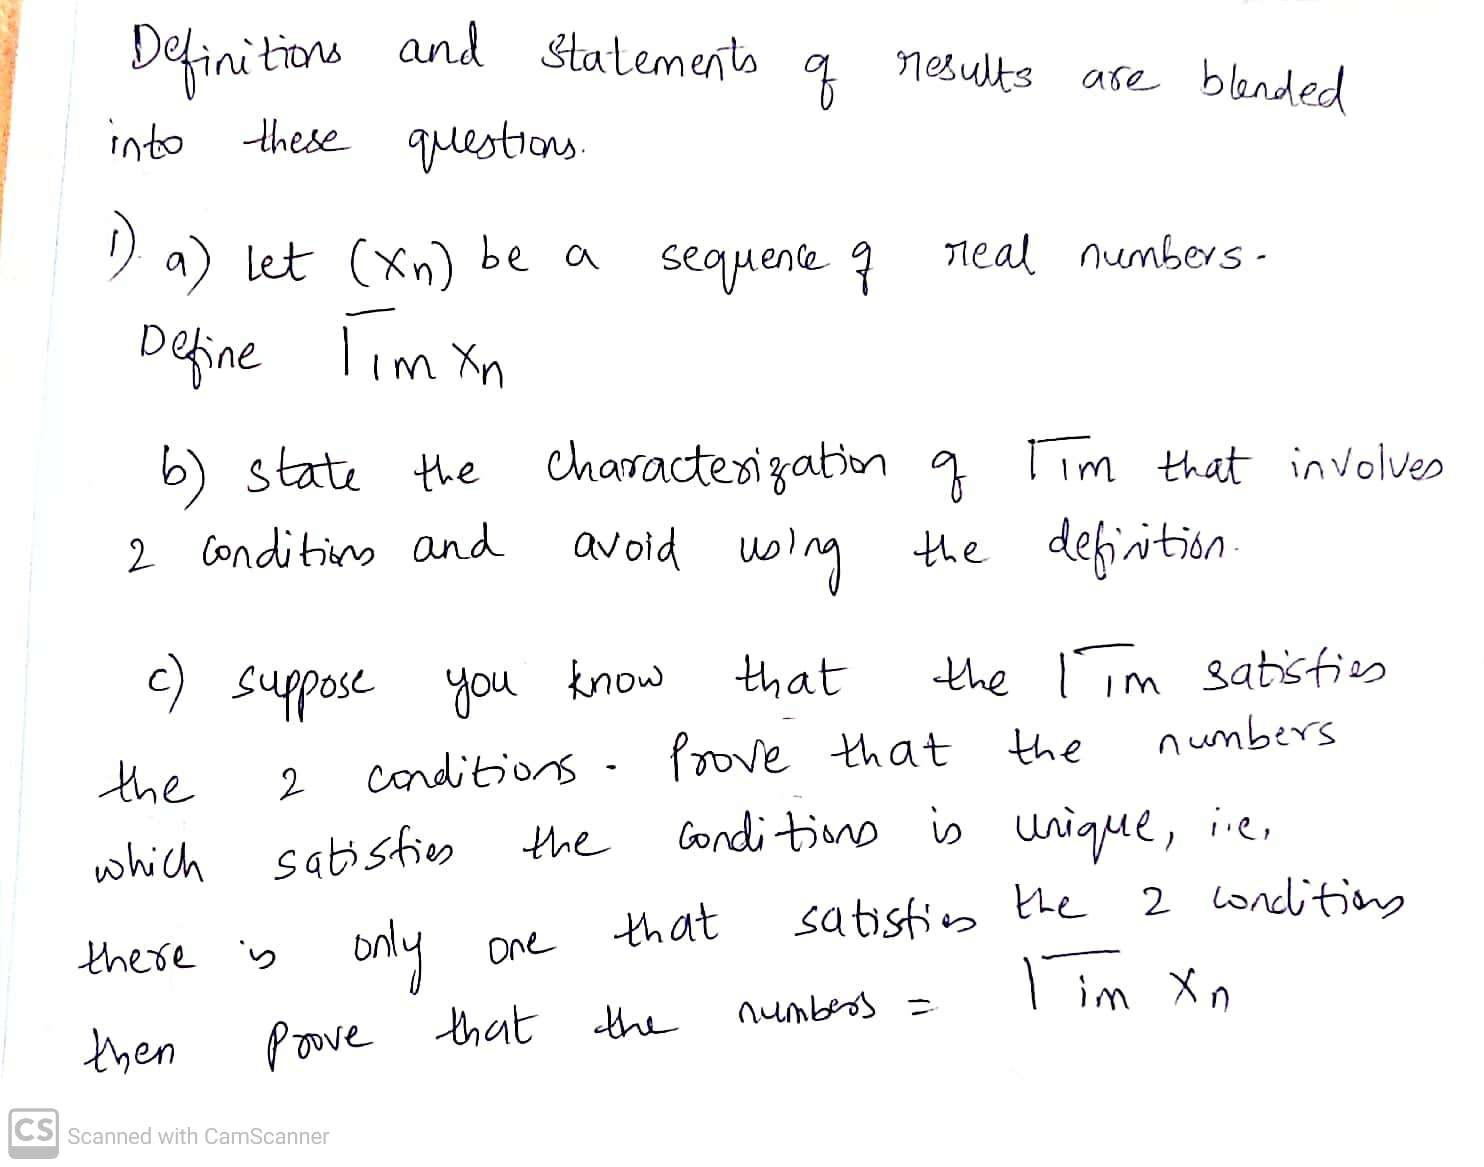 Definitions and statements of results are blended
into these questions.
1). a) Let (xn) be a sequence of real numbers.
Define l̅i̅m̅ xn
b) state the characterization of l̅i̅m̅ that involves
2 conditions and avoid using the definition.
c) suppose you know that the l̅i̅m̅ satisfies
the 2 conditions. Prove that the numbers
which satisfies the conditions is unique, i.e,
there is only one that satisfies the 2 conditions
then prove that the numbers = l̅i̅m̅ xn
CS Scanned with CamScanner